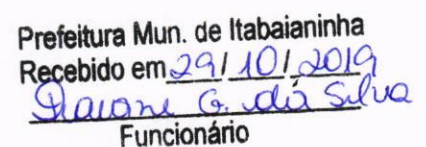 Prefeitura Mun. de Itabaianinha
Recebido em 29/10/2019
G. da Silva
Funcionário